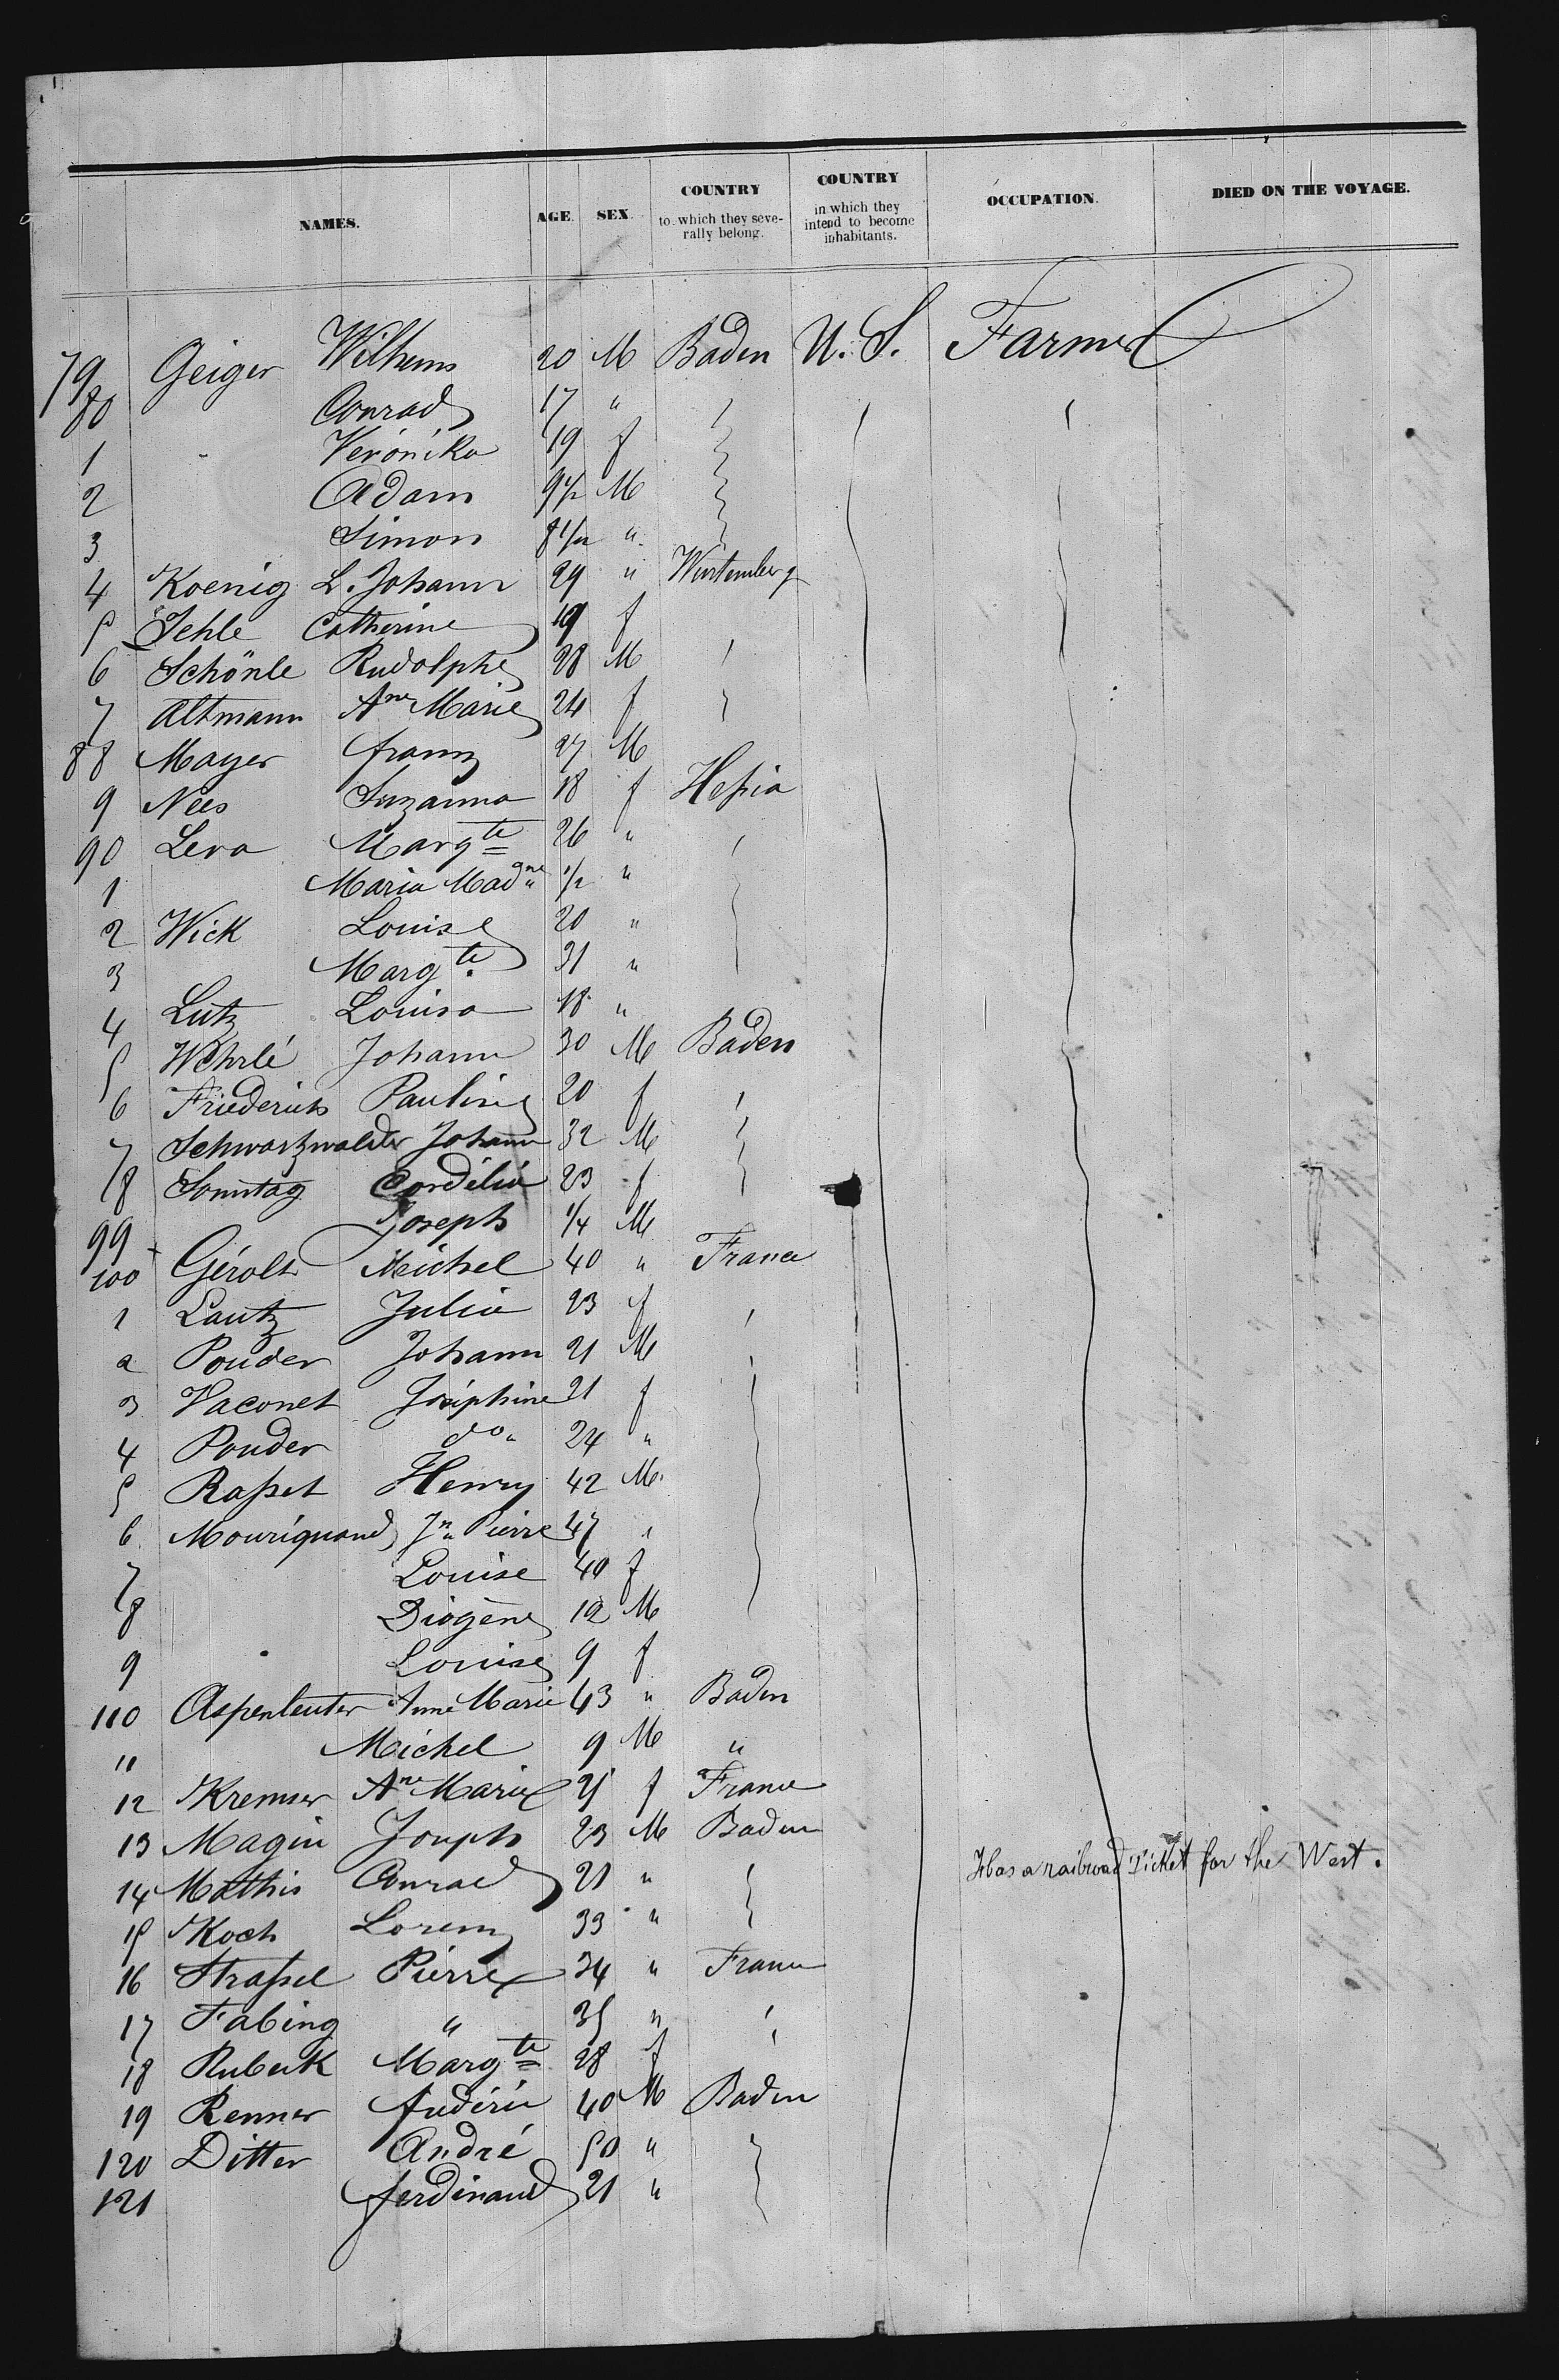 NAMES. AGE. SEX. COUNTRY to which they severally belong. COUNTRY in which they intend to become inhabitants. OCCUPATION. DIED ON THE VOYAGE.
79 Geiger Wilhems 20 M Baden U.S. Farmer
80 Conrad 17 "
1 Véronika 19 f
2 Adam 9 1/2 M
3 Simon "
4 Koenig L. Johann 29 " Würtemberg
5 Jehle Catherine 19 f
6 Schönle Rudolphe 28 M
7 Altmann Ane Marie 24 f
88 Mayer franz 27 M
9 Nees Suzanna 18 f Heßia
90 Lera Margte 26 "
1 Maria Madne 1/2 "
2 Wick Louise 20 "
3 Margte 31 "
4 Lutz Louisa 18 "
5 Wehrlé Johann 30 M Baden
6 Friederich Pauline 20 f
7 Schwartzwalder Johann 32 M
8 Sonntag Cordélia 23 f
99 Joseph 1/4 M
100 Gérolt Michel 40 " France
1 Lautz Julia 23 f
2 Pouder Johann 21 M
3 Vaconet Joséphine 21 f
4 Pouder do " 24 "
5 Raßet Henry 42 M
6 Mouriquand Jn Pierre 47 "
7 Louise 40 f
8 Diogène 12 M
9 Louise 9 f
110 Aspenleuter Anne Marie 43 " Baden
11 Michel 9 M "
12 Kremser Ane Marie f France
13 Magin Joseph 23 M Baden
14 Mathis Conrad 21 " Has a railroad Ticket for the West.
15 Koch Lorenz 33 "
16 Straßel Pierre 34 " France
17 Fabing " 35 "
18 Rubeck Margte 28 f
19 Renner frédéric 40 M Baden
120 Ditter André 50 "
121 ferdinand 21 "